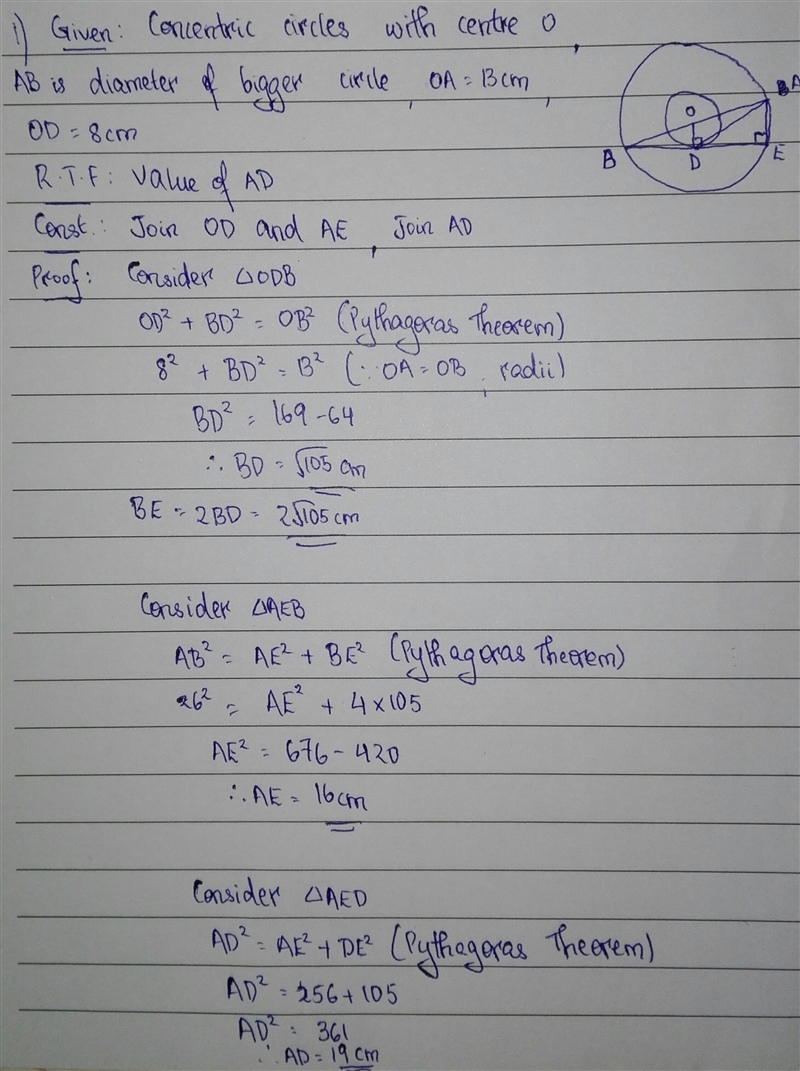 1) Given: Concentric circles with centre O,
AB is diameter of bigger circle, OA = 13cm,
OD = 8cm
R.T.F: Value of AD
Const.: Join OD and AE, Join AD
Proof: Consider △ODB
OD² + BD² = OB² (Pythagoras Theorem)
8² + BD² = 13² (∵ OA = OB, radii)
BD² = 169 - 64
∴ BD = √105 cm
BE = 2BD = 2√105 cm
Consider △AEB
AB² = AE² + BE² (Pythagoras Theorem)
26² = AE² + 4 × 105
AE² = 676 - 420
∴ AE = 16cm
Consider △AED
AD² = AE² + DE² (Pythagoras Theorem)
AD² = 256 + 105
AD² = 361
∴ AD = 19cm
A
O
B
D
E